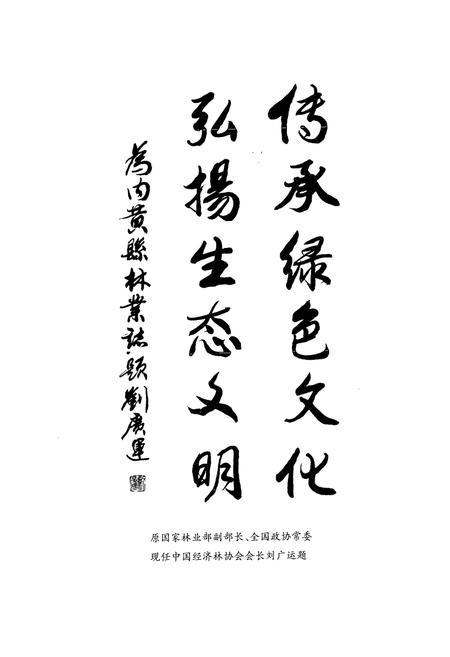 传承绿色文化
弘揚生态文明
為内黄縣林業誌题劉广運
原国家林业部副部长、全国政协常委
现任中国经济林协会会长刘广运题